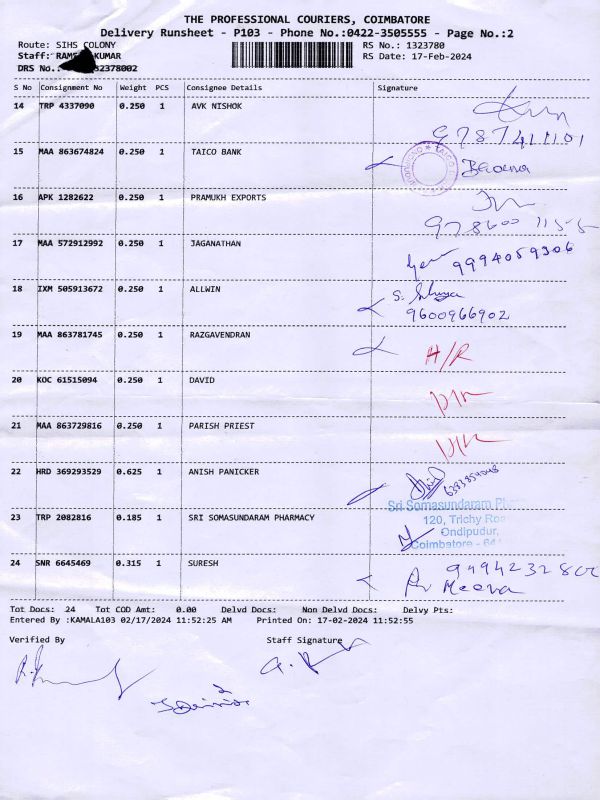 THE PROFESSIONAL COURIERS, COIMBATORE
Delivery Runsheet - P103 - Phone No.:0422-3505555 - Page No.:2
Route: SIHS COLONY RS No.: 1323780
Staff: KUMAR RS Date: 17-Feb-2024
DRS No.: 32378002
S No Consignment No Weight PCS Consignee Details Signature
14 TRP 4337090 0.250 1 AVK NISHOK
9787411101
15 MAA 863674824 0.250 1 TAICO BANK
16 APK 1282622 0.250 1 PRAMUKH EXPORTS
17 MAA 572912992 0.250 1 JAGANATHAN
9994059306
18 IXM 505913672 0.250 1 ALLWIN
9600966902
19 MAA 863781745 0.250 1 RAZGAVENDRAN H/R
20 KOC 61515094 0.250 1 DAVID
21 MAA 863729816 0.250 1 PARISH PRIEST
22 HRD 369293529 0.625 1 ANISH PANICKER
Sri Somasundaram
23 TRP 2082816 0.185 1 SRI SOMASUNDARAM PHARMACY
120, Trichy
Ondipudur,
Coimbatore - 64
24 SNR 6645469 0.315 1 SURESH
Meera
Tot Docs: 24 Tot COD Amt: 0.00 Delvd Docs: Non Delvd Docs: Delvy Pts:
Entered By :KAMALA103 02/17/2024 11:52:25 AM Printed On: 17-02-2024 11:52:55
Verified By Staff Signature